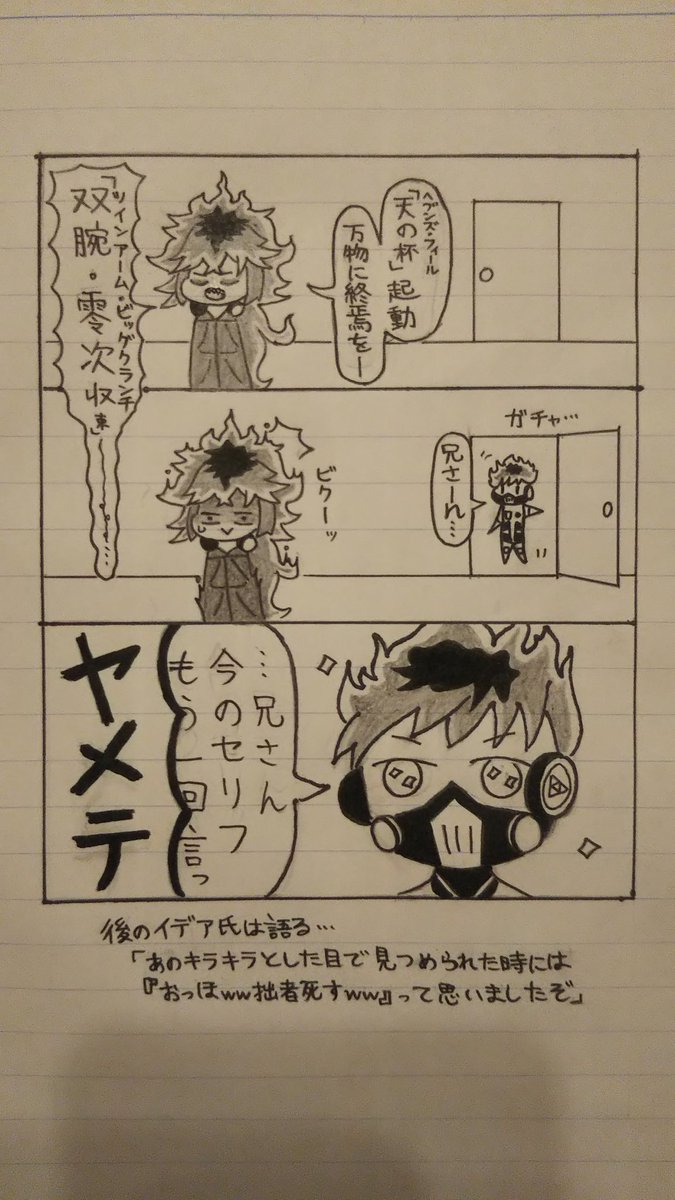 ヘブンズ・フィール
「天の杯」起動
万物に終焉をー
ツインアーム・ビッグクランチ
「双腕・零次収束」
ガチャ…
兄さーん…
ビクーッ
…兄さん
今のセリフ
もう一回言っ
ヤメテ
後のイデア氏は語る…
「あのキラキラとした目で見つめられた時には
『おっほww拙者死すww』って思いましたぞ」